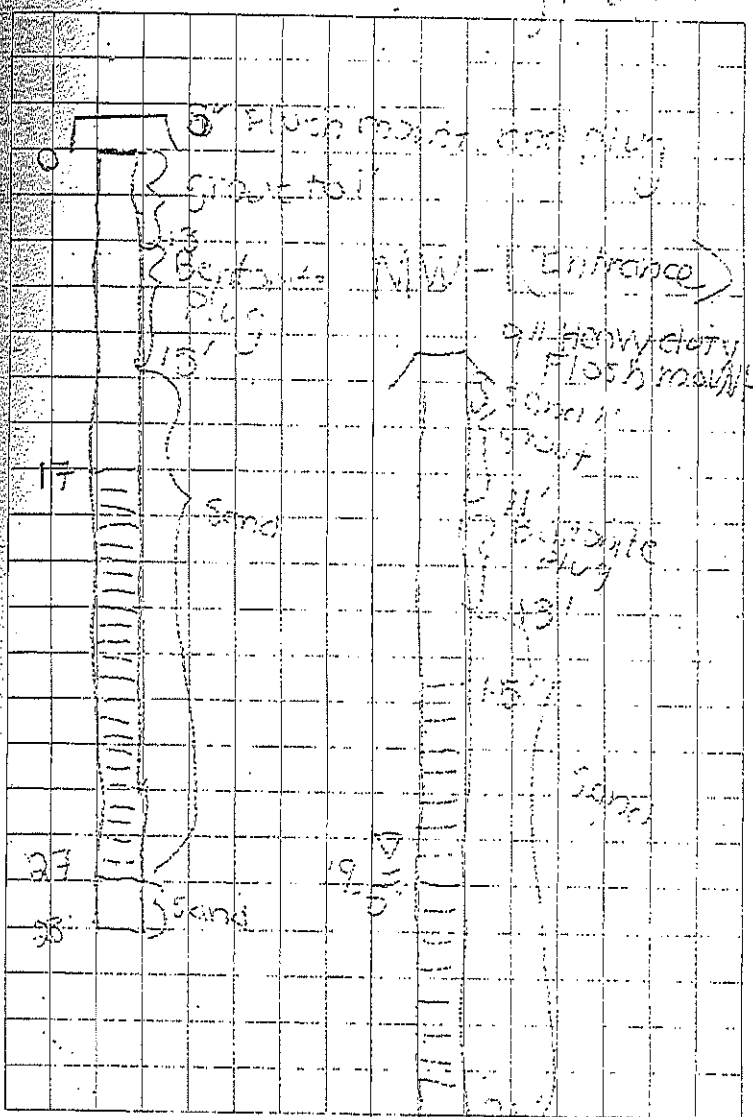 Flush mount and plug
0
Grout to 1'
13
Bentonite
Plug
15'
17
Sand
27
Sand
28'
MW-1 (Entrance)
9" Heavy duty
Flush mount
Sand 1'
grout
11'
Bentonite
plug
13'
15'
Sand
19